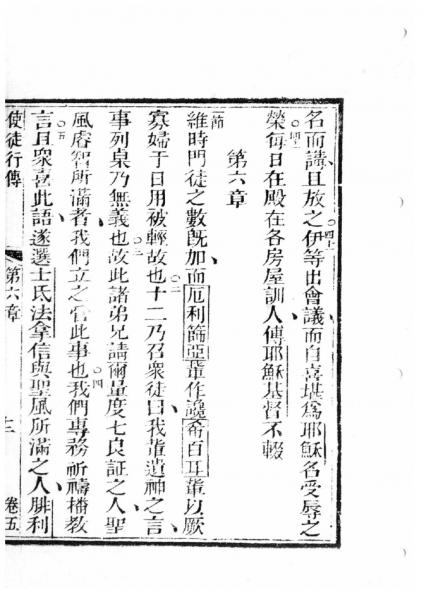 名而譸且放之○四十一伊等出會議而自喜堪爲耶穌名受辱之
榮○四十二每日在殿在各房屋訓人傳耶穌基督不輟
第六章
一節維時門徒之數旣加而厄利篩亞輩作讒希百耳輩以厥
寡婦于日用被輕故也○二十二乃召衆徒曰我輩遺神之言
事列桌乃無義也○三故此諸弟兄請爾量度七良証之人聖
風睿智所滿者我們立之管此事也○四我們專務祈禱播教
言○五且衆喜此語遂選士氐法拿信與聖風所滿之人腓利
使徒行傳 第六章 十一 卷五